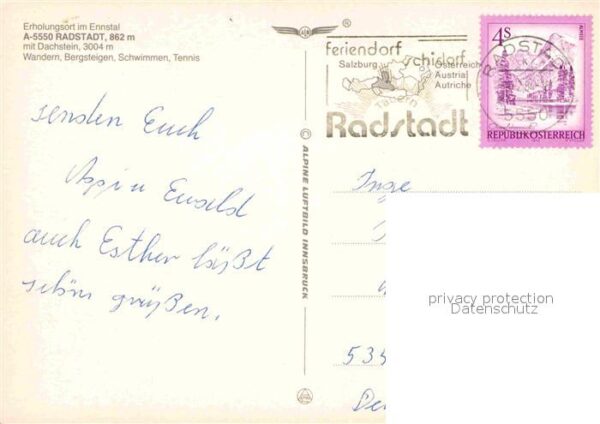 Erholungsort im Ennstal
A-5550 RADSTADT, 862 m
mit Dachstein, 3004 m
Wandern, Bergsteigen, Schwimmen, Tennis
senden Euch
Ewald
auch Esther läßt
schön grüßen.
© ALPINE LUFTBILD INNSBRUCK
feriendorf
schidorf
Salzburg
Österreich
Austria
Autriche
Tauern
Radstadt
4S
RADSTADT
5550
REPUBLIK ÖSTERREICH
Inge
privacy protection
Datenschutz
534